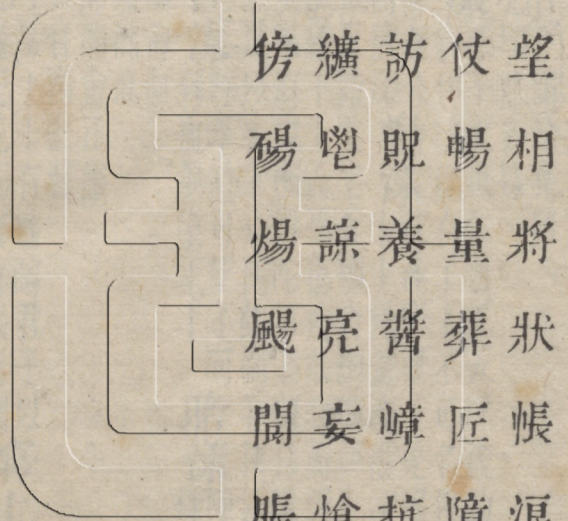 望相將狀帳
仗暢量葬匠
訪貺養醬嶂
纊鬯諒亮妄
傍碭煬颺閬